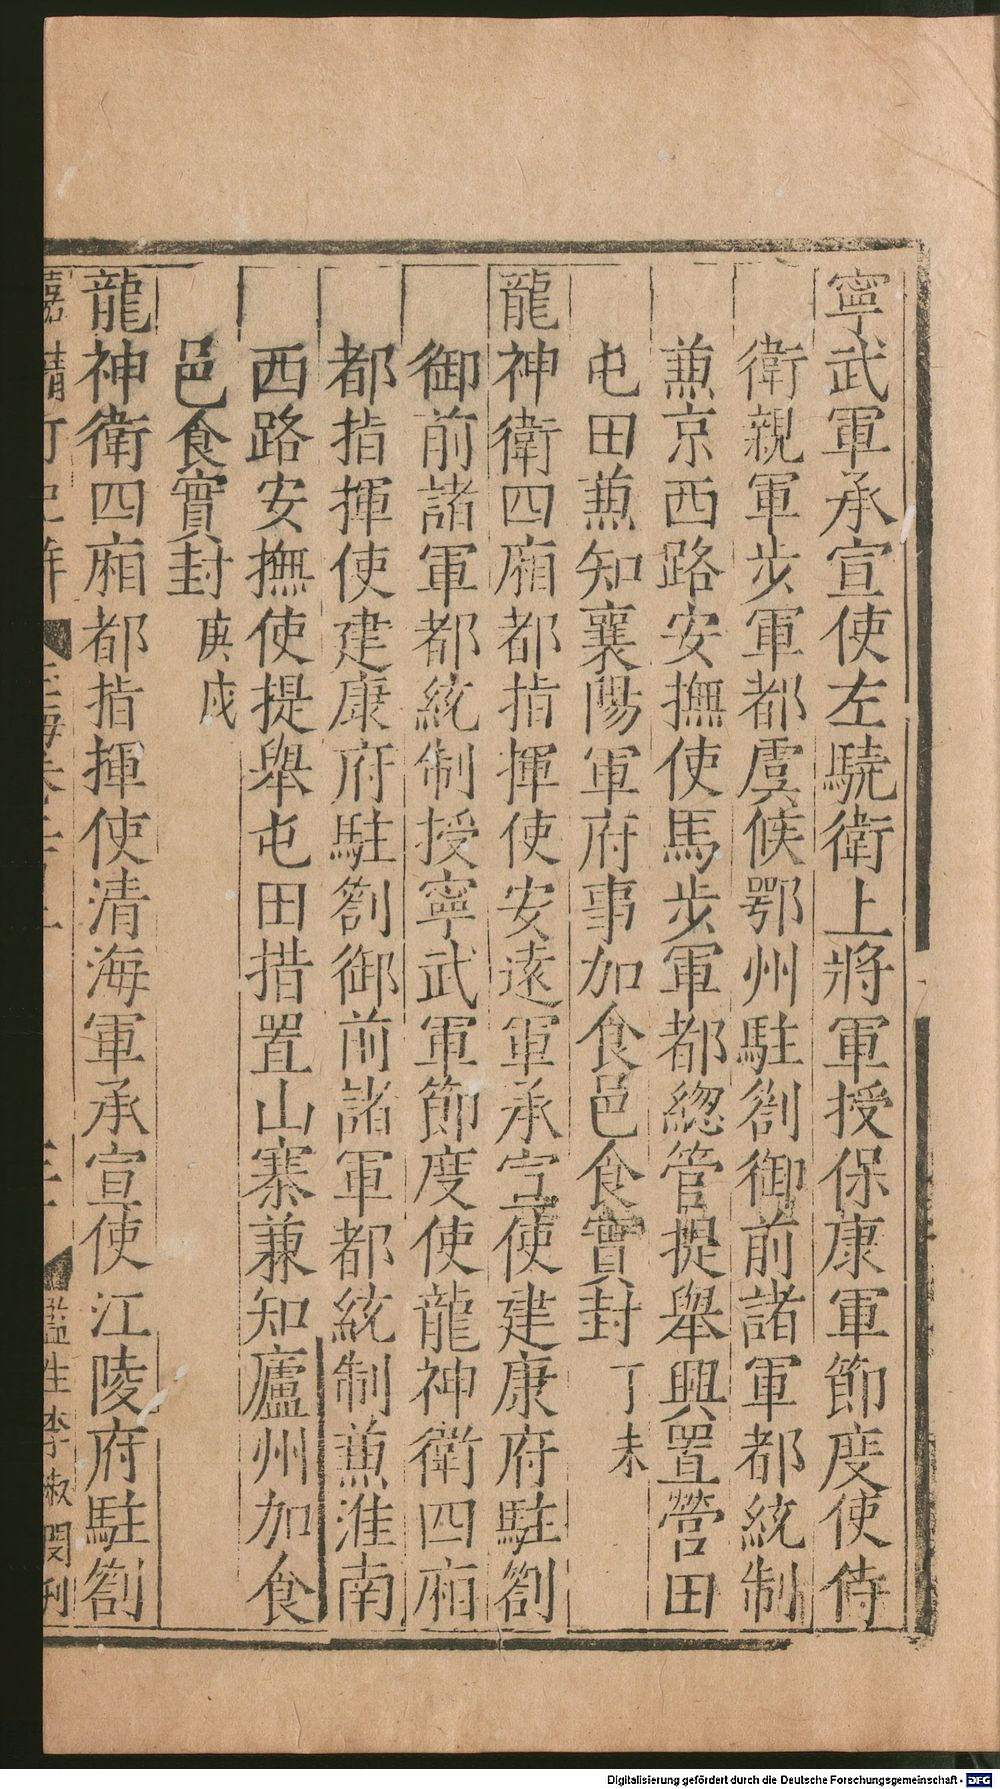 寧武軍承宣使左驍衛上將軍授保康軍節度使侍
衛親軍步軍都虞候鄂州駐劄御前諸軍都統制
兼京西路安撫使馬步軍都總管提舉興置營田
屯田兼知襄陽軍府事加食邑食實封丁未
龍神衛四廂都指揮使安遠軍承宣使建康府駐劄
御前諸軍都統制授寧武軍節度使龍神衛四廂
都指揮使建康府駐劄御前諸軍都統制兼淮南
西路安撫使提舉屯田措置山寨兼知廬州加食
邑食實封庚戌
龍神衛四廂都指揮使清海軍承宣使江陵府駐劄
監生李淑閔刊
Digitalisierung gefördert durch die Deutsche Forschungsgemeinschaft - DFG